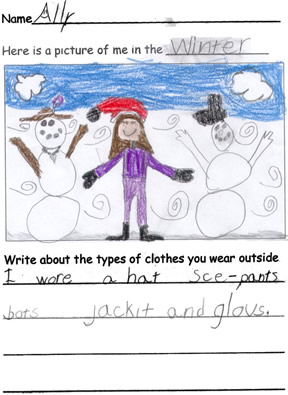 Name Ally
Here is a picture of me in the Winter
Write about the types of clothes you wear outside
I wore a hat sce-pants
bots jackit and glovs.